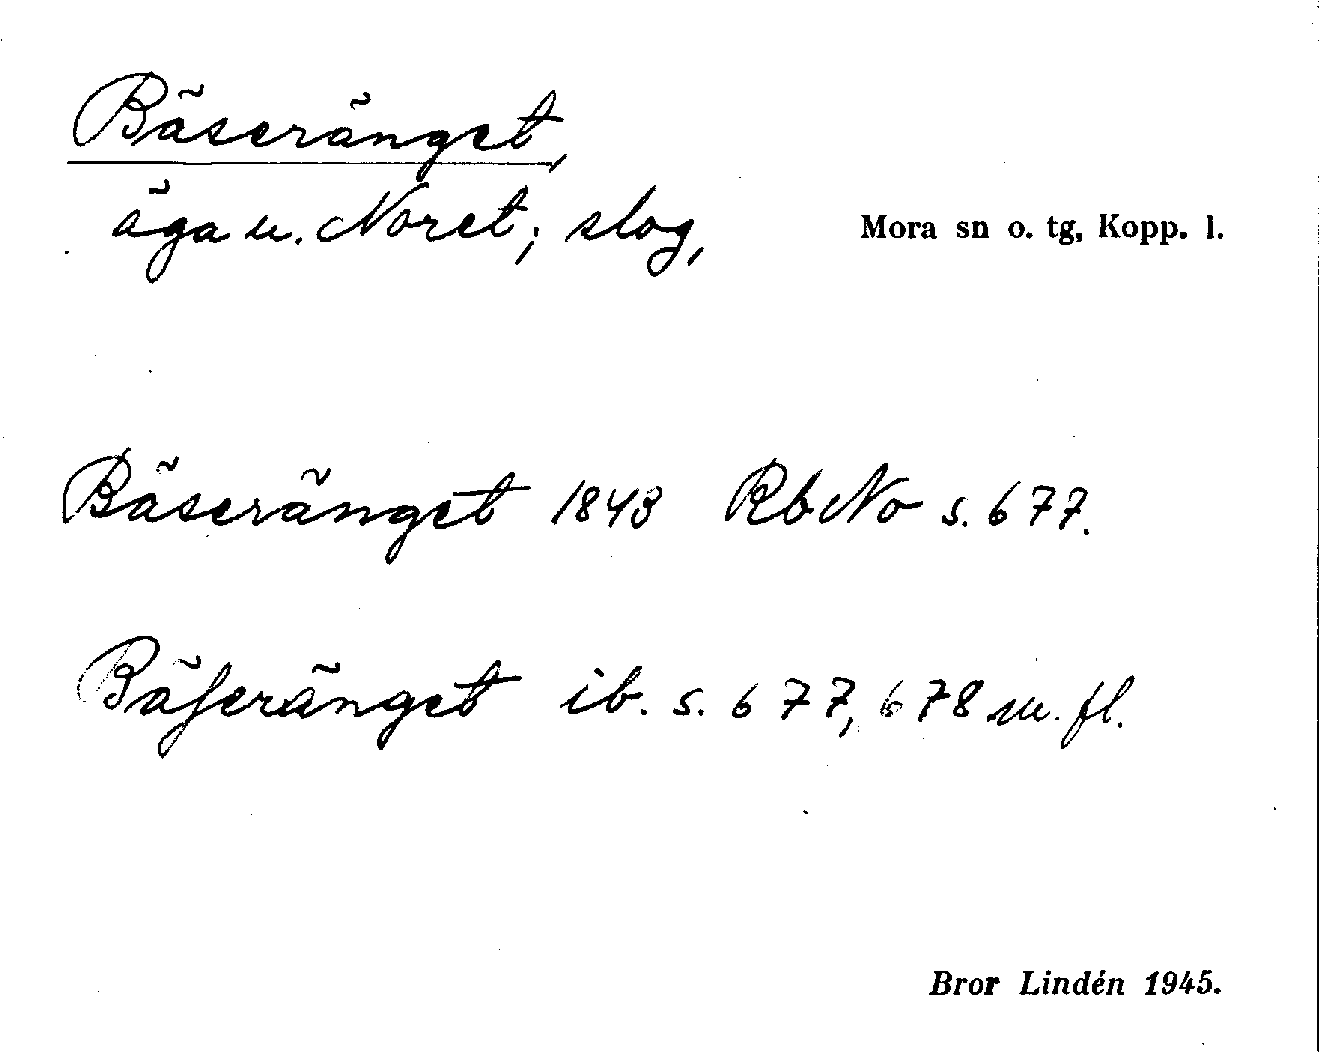 Bäseränget,
äga u. Noret; slog,
Mora sn o. tg, Kopp. l.
Bäseränget 1843 RbNo s. 677.
Bäſeränget ib. s. 677, 678 m. fl.
Bror Lindén 1945.